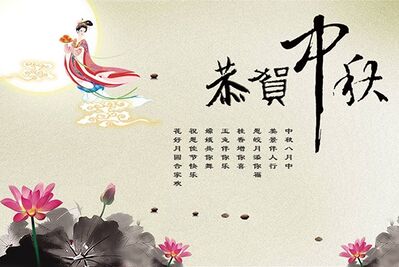 恭賀中秋
中秋八月中
美景伴人行
愿皎月添你福
桂香增你喜
玉兔伴你乐
嫦娥共你舞
祝愿佳节快乐
花好月圆合家欢